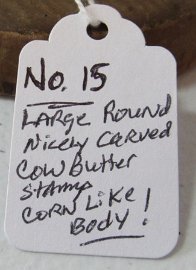 No. 15
LARGE ROUND
Nicely CARVED
COW BUTTER
STAMP
CORN LIKE
BODY!